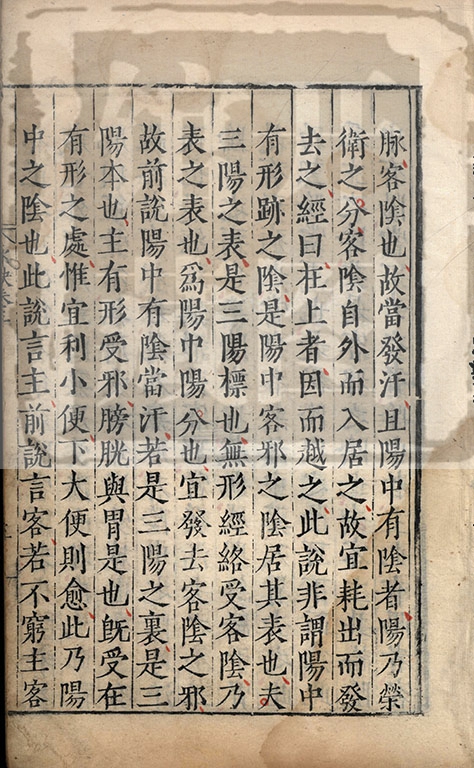 脉客陰也故當發汗且陽中有陰者陽乃榮
衛之分客陰自外而入居之故宜耗出而發
去之經曰在上者因而越之此說非謂陽中
有形跡之陰是陽中客邪之陰居其表也夫
三陽之表是三陽標也無形經絡受客陰乃
表之表也為陽中陽分也宜發去客陰之邪
故前說陽中有陰當汗若是三陽之裏是三
陽本也主有形受邪膀胱與胃是也既受在
有形之處惟宜利小便下大便則愈此乃陽
中之陰也此說言主前說言客若不窮主客